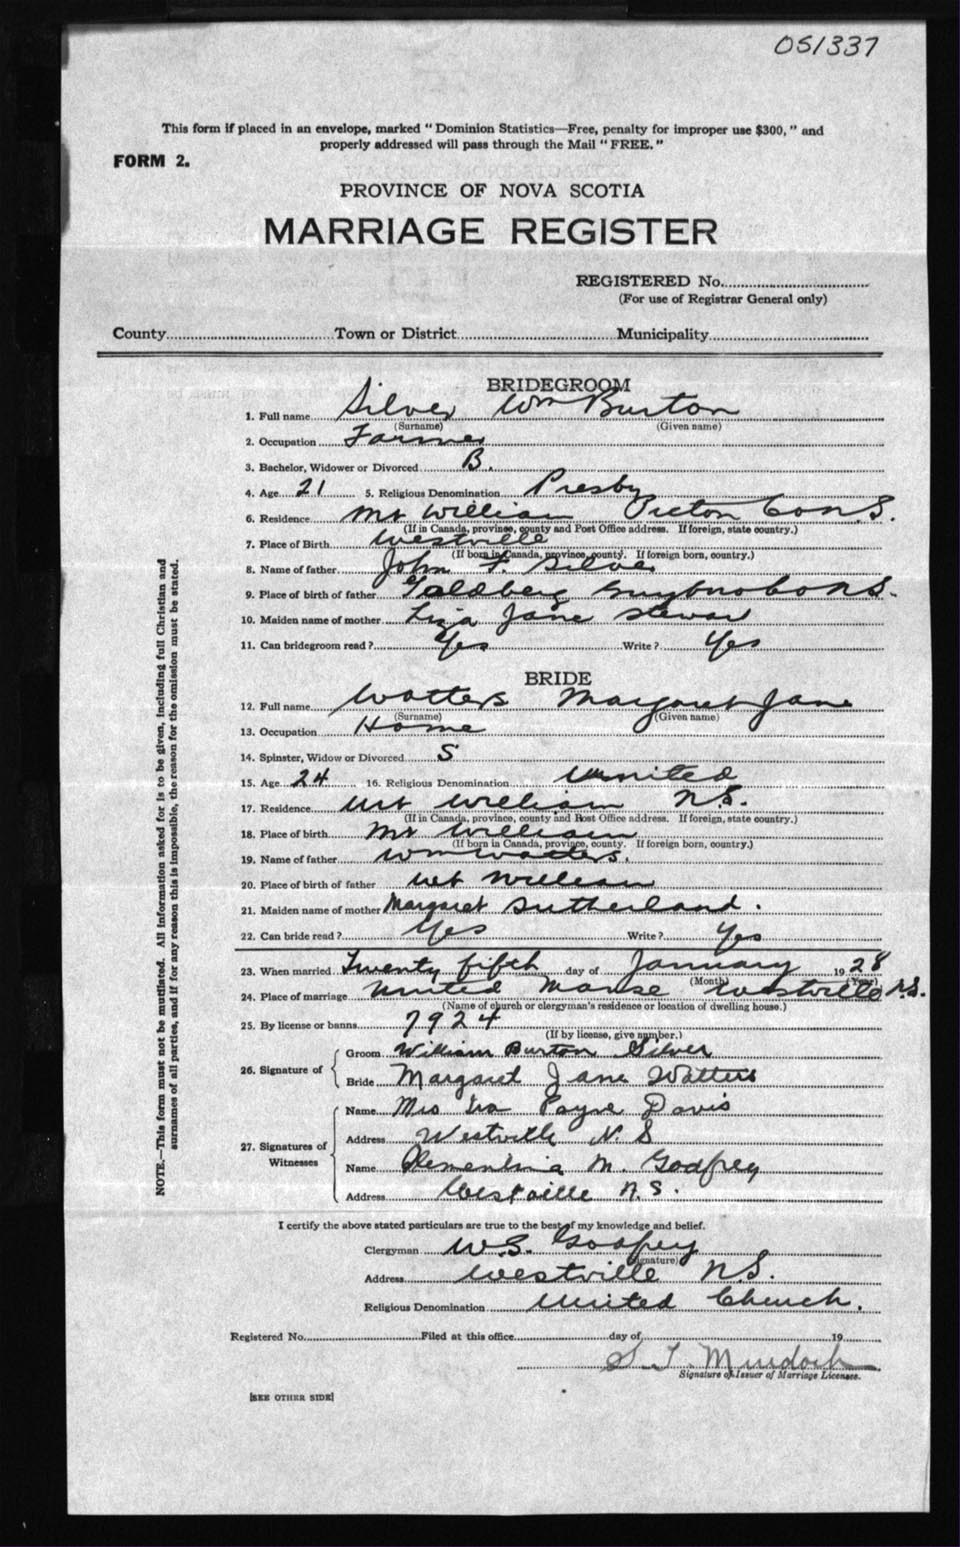 051337
This form if placed in an envelope, marked "Dominion Statistics—Free, penalty for improper use $300," and
properly addressed will pass through the Mail "FREE."
FORM 2.
PROVINCE OF NOVA SCOTIA
MARRIAGE REGISTER
REGISTERED No.
(For use of Registrar General only)
County Town or District Municipality
BRIDEGROOM
1. Full name Silver Wm Burton
(Surname) (Given name)
2. Occupation Farmer
3. Bachelor, Widower or Divorced B.
4. Age 21 5. Religious Denomination Presby
6. Residence Mt William Pictou Co N.S.
(If in Canada, province, county and Post Office address. If foreign, state country.)
7. Place of Birth Westville
(If born in Canada, province, county. If foreign born, country.)
8. Name of father John F. Silver
9. Place of birth of father Goldberg Guysboro Co N.S.
10. Maiden name of mother Liza Jane Stewart
11. Can bridegroom read? Yes Write? Yes
BRIDE
12. Full name Watters Margaret Jane
(Surname) (Given name)
13. Occupation Home
14. Spinster, Widow or Divorced S
15. Age 24 16. Religious Denomination United
17. Residence Mt William N.S.
(If in Canada, province, county and Post Office address. If foreign, state country.)
18. Place of birth Mt William
(If born in Canada, province, county. If foreign born, country.)
19. Name of father Wm Watters.
20. Place of birth of father Mt William
21. Maiden name of mother Margaret Sutherland.
22. Can bride read? Yes Write? Yes
23. When married Twenty fifth day of January 1928
(Month) (Year)
24. Place of marriage United Manse Westville N.S.
(Name of church or clergyman's residence or location of dwelling house.)
25. By license or banns 7924
(If by license, give number.)
26. Signature of
Groom William Burton Silver
Bride Margaret Jane Watters
27. Signatures of Witnesses
Name Mrs Payne Davis
Address Westville N.S
Name Clementina M. Godfrey
Address Westville N.S.
I certify the above stated particulars are true to the best of my knowledge and belief.
Clergyman W.S. Godfrey
(Signature)
Address Westville N.S.
Religious Denomination United Church.
Registered No. Filed at this office day of 19
S. T. Murdoch
Signature of Issuer of Marriage Licenses.
[SEE OTHER SIDE]
NOTE.—This form must not be mutilated. All information asked for is to be given, including full Christian and
surnames of all parties, and if for any reason this is impossible, the reason for the omission must be stated.